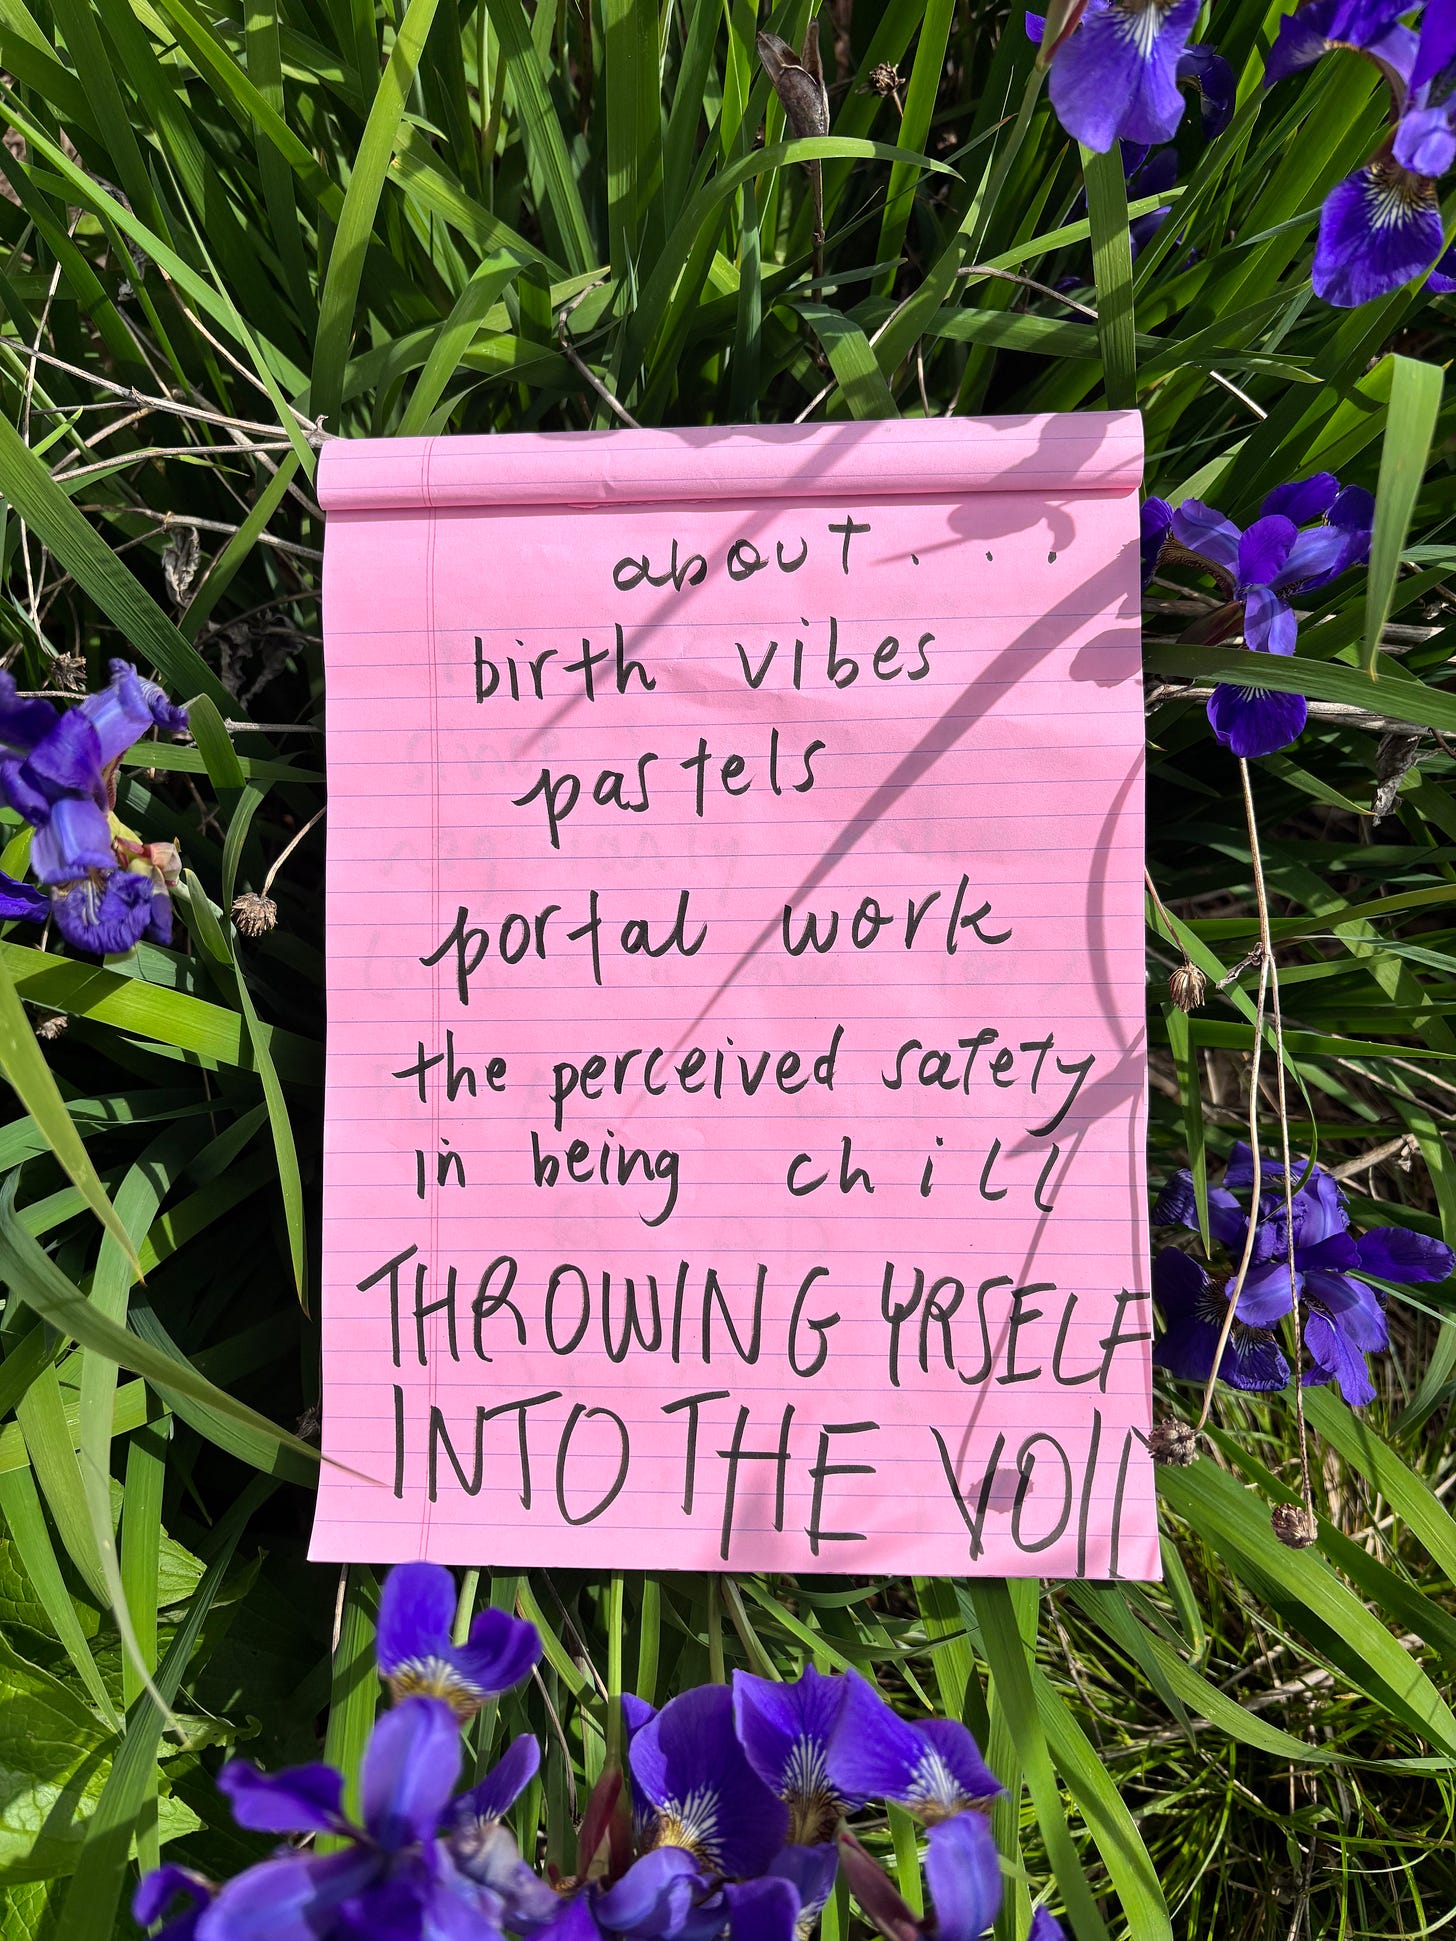 about...
birth vibes
pastels
portal work
the perceived safety
in being chill
THROWING YRSELF
INTO THE VOI